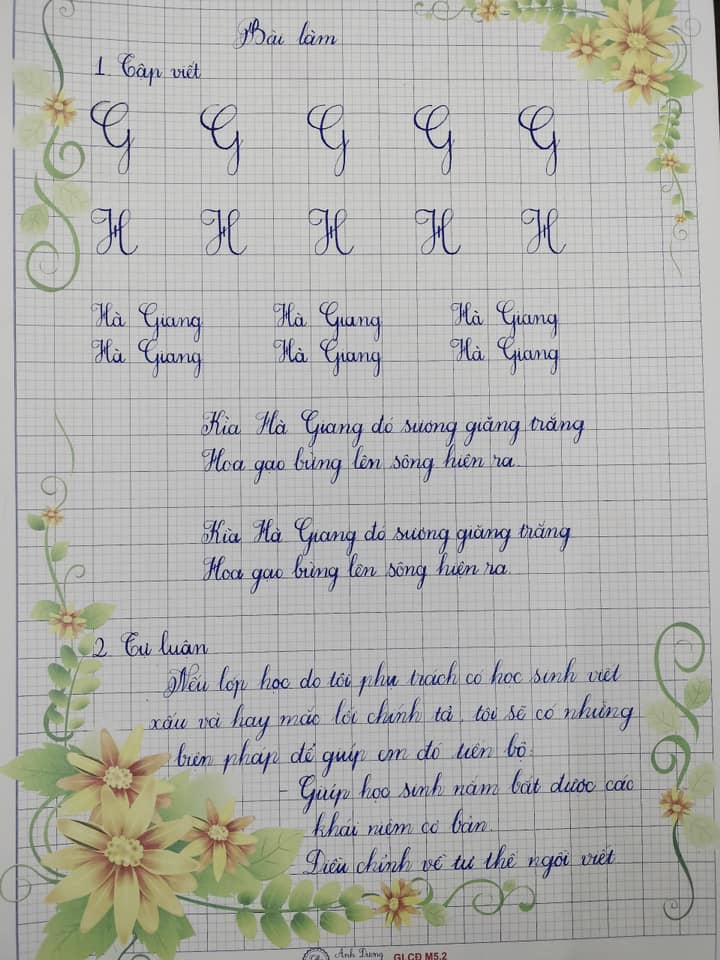 Bài làm
1. Tập viết
G G G G G
H H H H H
Hà Giang Hà Giang Hà Giang
Hà Giang Hà Giang Hà Giang
Kìa Hà Giang đó sương giăng trắng
Hoa gạo bừng lên sông hiện ra.
Kìa Hà Giang đó sương giăng trắng
Hoa gạo bừng lên sông hiện ra.
2. Tự luận
Nếu lớp học do tôi phụ trách có học sinh viết
xấu và hay mắc lỗi chính tả, tôi sẽ có những
biện pháp để giúp em đó tiến bộ.
- Giúp học sinh nắm bắt được các
khái niệm cơ bản.
- Điều chỉnh về tư thế ngồi viết
Ánh Dương GLCĐ M5.2